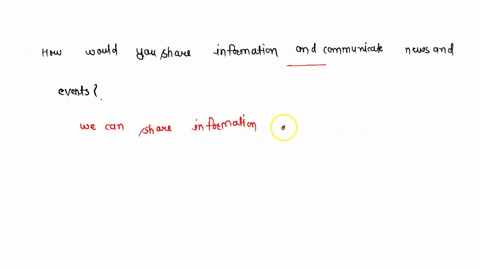 How would you share information and communicate news and
events?
we can share information